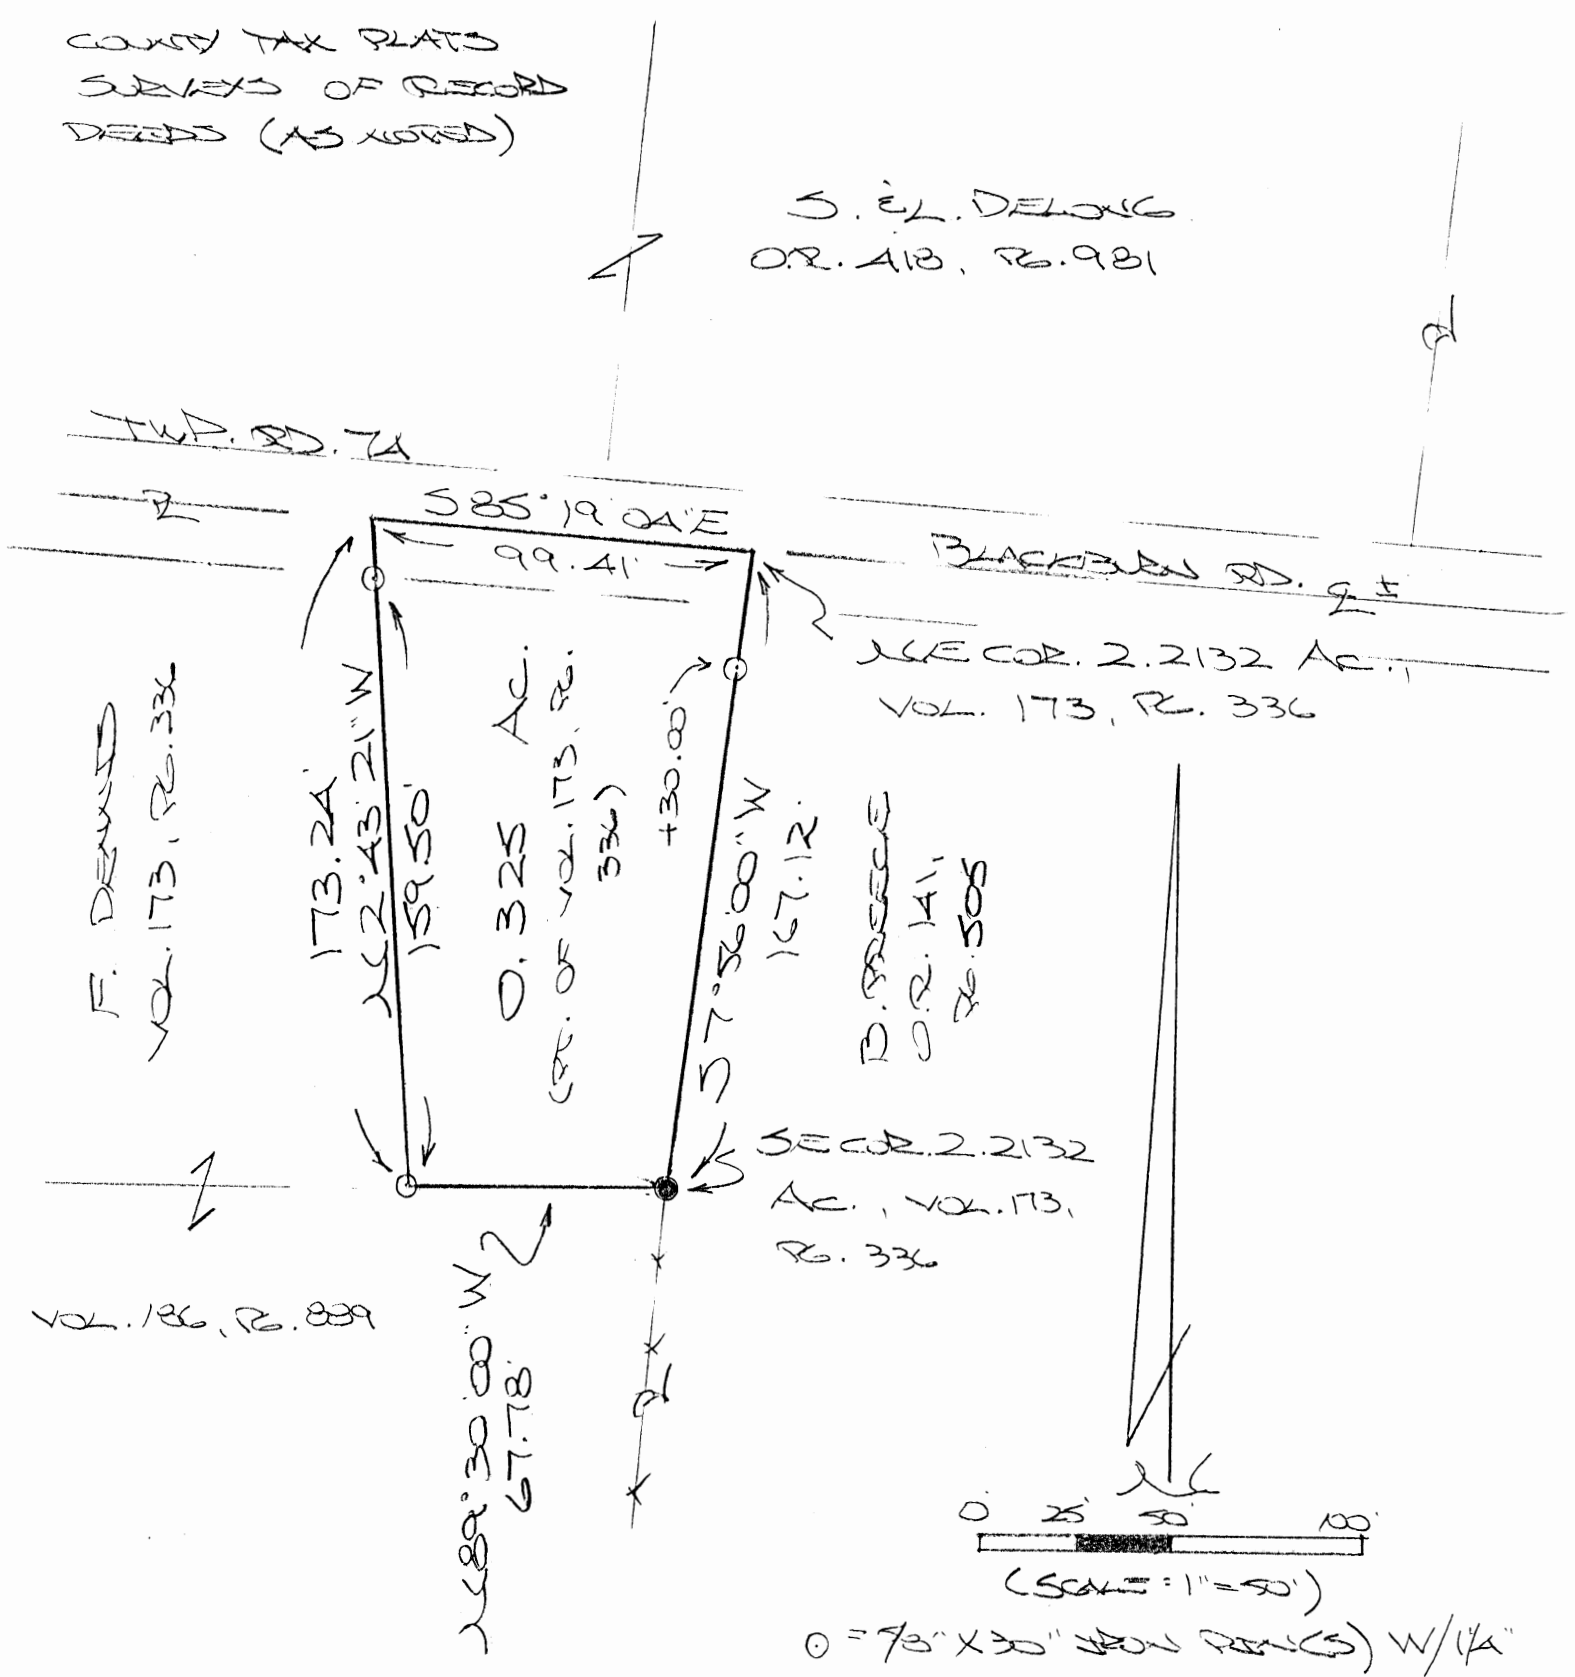 COUNTY TAX PLATS
SURVEYS OF RECORD
DEEDS (AS NOTED)
S. & L. DELONG
O.R. 413, PG. 931
TWP. RD. 7A
S 85° 19' 04" E
99.41'
BLACKBURN RD. ℄ ±
NE COR. 2.2132 AC.,
VOL. 173, PG. 336
F. DENNIS
VOL. 173, PG. 336
173.24'
N 2° 43' 21" W
159.50'
0.325 AC.
(PT. OF VOL. 173, PG.
336)
+30.00'
S 7° 56' 00" W
167.12'
B. PREECE
O.R. 141,
PG. 505
SE COR. 2.2132
AC., VOL. 173,
PG. 336
VOL. 186, PG. 889
N 89° 30' 00" W
67.78'
N
0' 25' 50' 100'
(SCALE : 1" = 50')
⊙ = 5/8" X 30" IRON PIN(S) W/ 1 1/4"